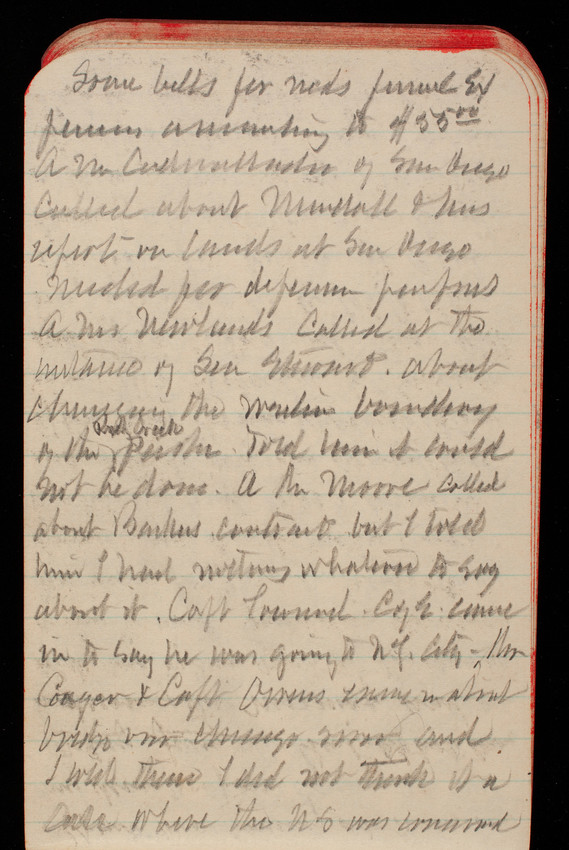 Some bills for neds funeral Ex
penses amounting to $55.00
A Mr Cadwallader of San Diego
Called about Mendall & his
report on lands at San Diego
needed for defense purposes
A Mr Newlands Called at the
instance of Sen Stewart. about
changing the western boundary
of the Rock Creek Park. Told him it could
not be done. A Mr Moore called
about Barkers contract but I told
him I had nothing whatever to say
about it. Capt Townsend. C of E. came
in to say he was going to N.Y. City - Mr
Conger & Capt Owens came in about
bridge over Chicago river and
I told them I did not think it a
Case where the US was concerned